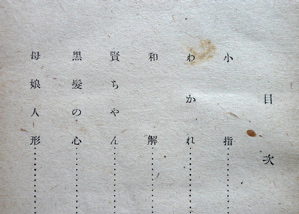 目次
小指……………
わかれ……………
和解……………
賢ちやん……………
黒髪の心……………
母娘人形……………